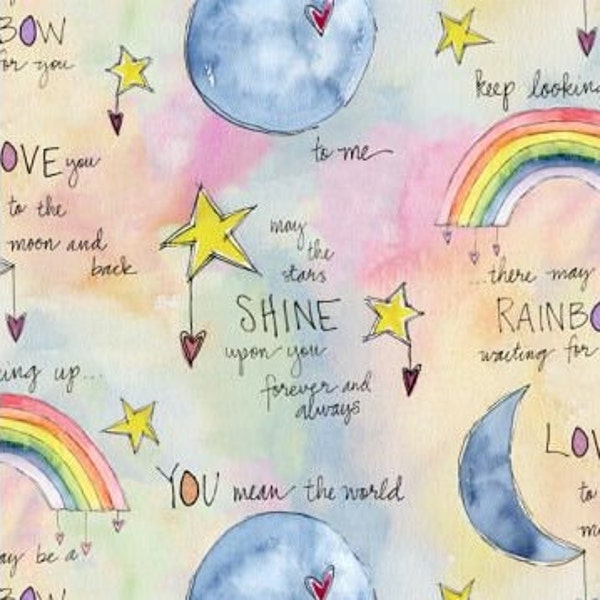 BOW
for you
keep looking
to me
LOVE you
to the
moon and
back
may
the
stars
SHINE
upon you
forever and
always
...there may
RAINBO
waiting for
king up...
LOV
to
mo
YOU mean the world
ay be a
BOW